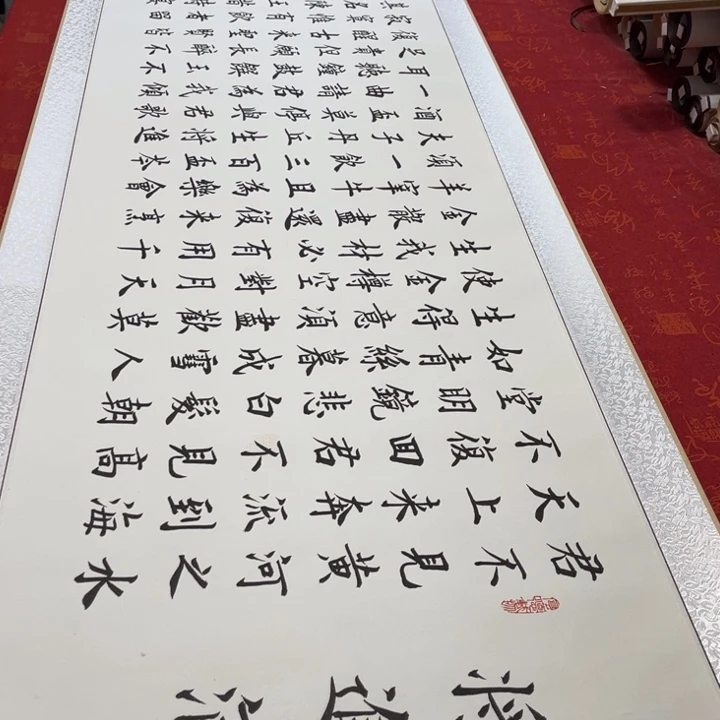 将進酒
君不見黃河之水
天上来奔流到海
不復回君不見高
堂明鏡悲白髮朝
如青絲暮成雪人
生得意須盡歡莫
使金樽空對月天
生我材必有用千
金散盡還復来烹
羊宰牛且為樂會
須一飲三百盃岑
夫子丹丘生將進
酒盃莫停與君歌
一曲請君為我傾
耳聽鐘鼓饌玉不
足貴但願長醉不
復醒古来聖賢皆
寂寞惟有飲者留
其名陳王